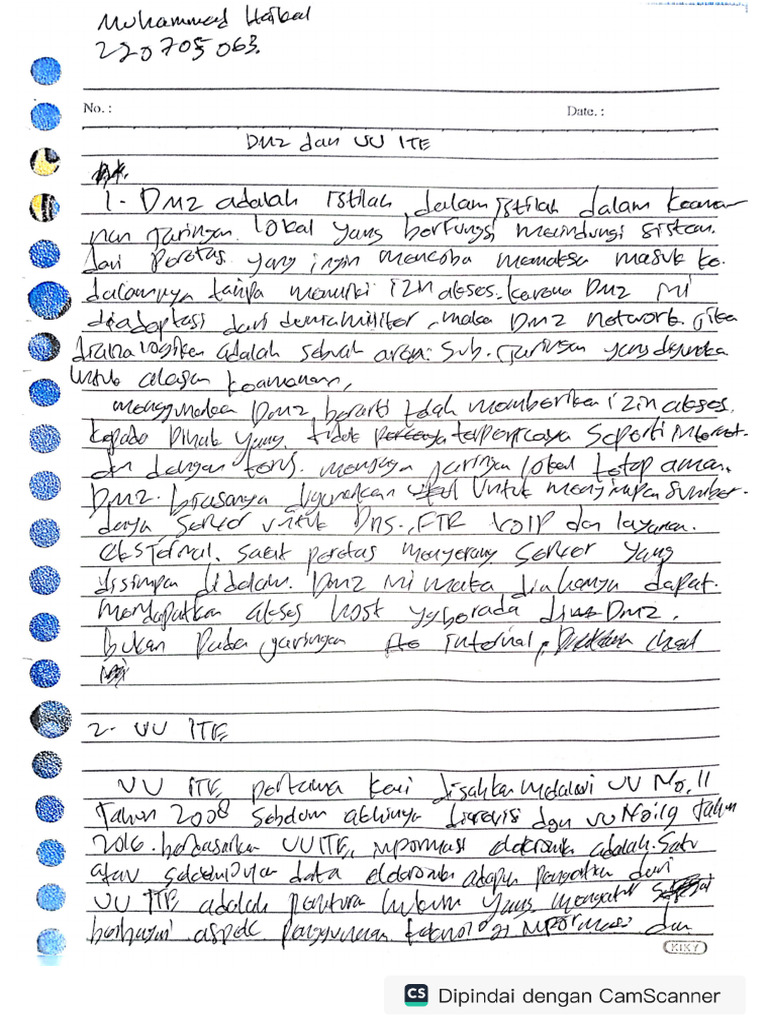 Muhammad Haikal
220705063.
No. :
Date. :
DMZ dan UU ITE
1. DMZ adalah istilah dalam istilah dalam keama
nan jaringan lokal yang berfungsi melindungi sistem.
dari peretas yang ingin mencoba memaksa masuk ke.
dalamnya tanpa memiliki izin akses. karena DMZ ini
diadaptasi dari demiliter, maka DMZ network jika
dianalogikan adalah sebuah area. Sub. jaringan yang digunaka
untuk alasan keamanan,
menggunakan DMZ berarti tidak memberikan izin akses.
kepada pihak yang tidak percaya terpercaya seperti internet.
dan dengan terus. menjaga jaringan lokal tetap aman.
DMZ. biasanya digunakan untuk menyimpan sumber.
daya, server untuk DNS., FTP, VOIP dan layanan.
eksternal. saat peretas menyerang server yang
disimpan didalam. DMZ ini maka dia hanya dapat.
mendapatkan akses host yg berada di DMZ.
bukan pada jaringan internal,
2. UU ITE
UU ITE pertama kali disahkan melalui UU No. 11
Tahun 2008 sebelum akhirnya direvisi dgn UU No. 19 Tahun
2016. berdasarkan UU ITE, informasi elektronik adalah. satu
atau sekumpulan data elektronik adapun pengertian dari
UU ITE adalah peratura hukum yang mengatur
berbagai aspek penggunaan teknologi informasi dan
KIKY
CS Dipindai dengan CamScanner